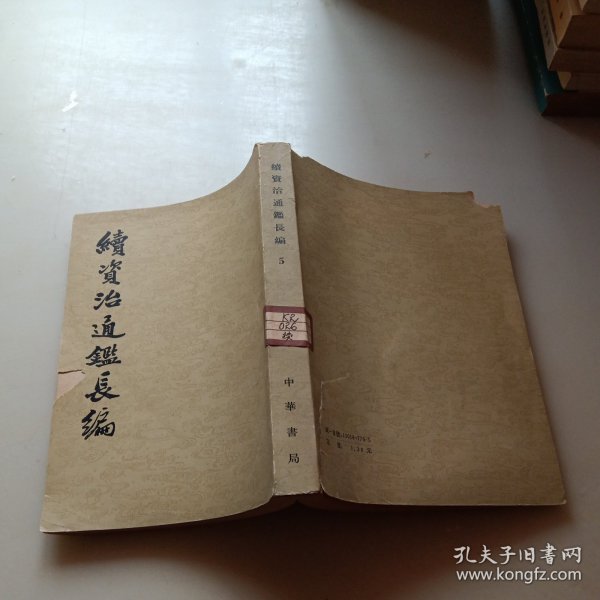 續資治通鑑長編
續資治通鑑長編 5
KR
086
中華書局
統一書號:11018·776·5
定價: 1.30 元
孔夫子旧书网
www.kongfz.com